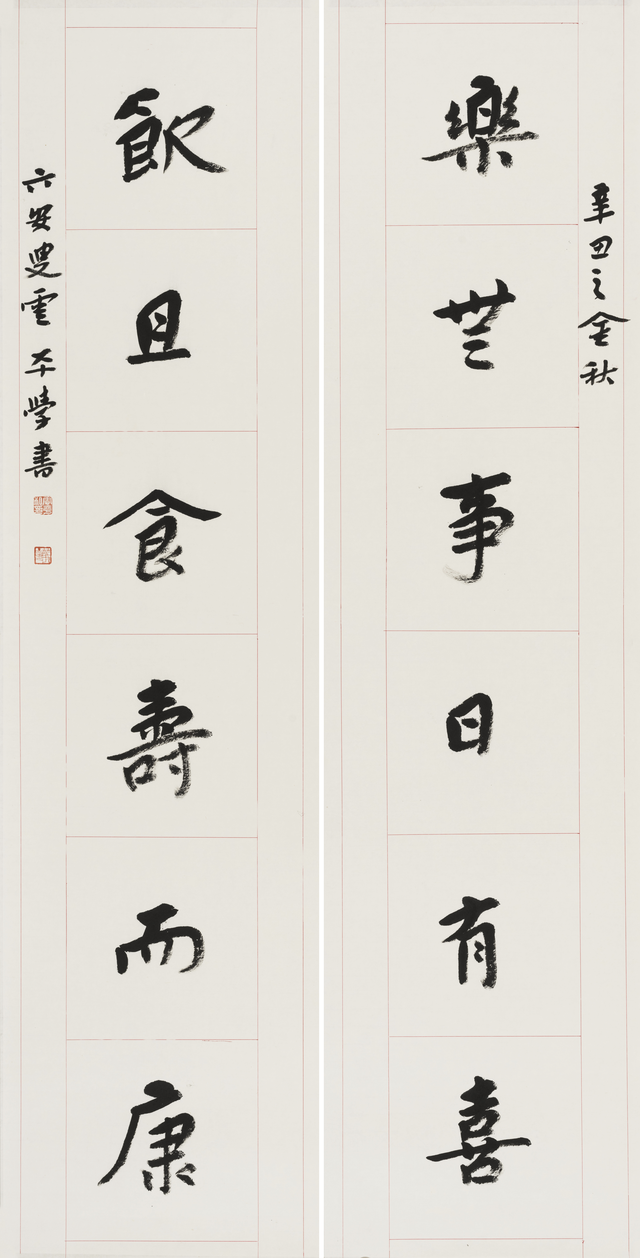 辛丑之金秋
樂無事日有喜
飲且食壽而康
六安雲學書